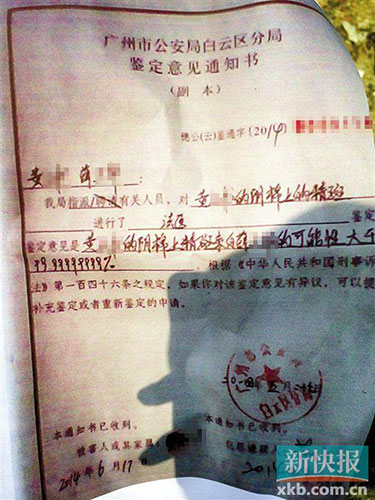 广州市公安局白云区分局
鉴定意见通知书
（副本）
穗公(云)鉴通字〔2014〕
黄 薛 ：
我局指派/聘请有关人员，对 黄 的阴棉上的精斑
进行了 法医 鉴定
鉴定意见是 黄 的阴棉上精斑来自薛 的可能性大于
99.99999999% 。根据《中华人民共和国刑事诉
法》第一百四十六条之规定，如果你对该鉴定意见有异议，可以提
补充鉴定或者重新鉴定的申请。
本通知书已收到。
被害人或其家属：
2014年6月17日
本通知书已收到。
犯罪嫌疑
201
新快报
xkb.com.cn